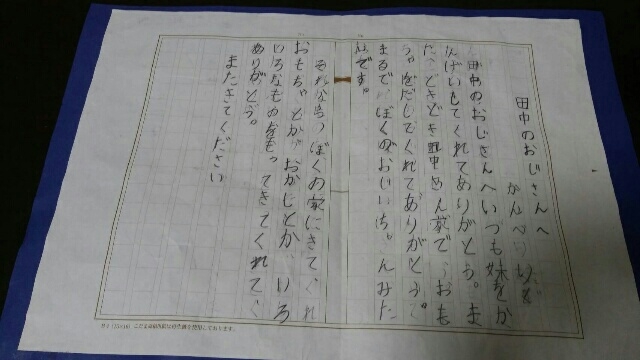 田中のおじさんへ
田中の、おじさんへいつも妹をか
んげいもてくれてありがとう。ま
た、どきどき田中さん家で、おも
ちゃをだしてくれてありがとう。
まるで、ぼくのおじいちゃんみた
いです。
ぼくの家にきてくれ
おもちゃとか、おかしとか、いろ
いろなものをもってきてくれて、
ありがとう。
またきてください